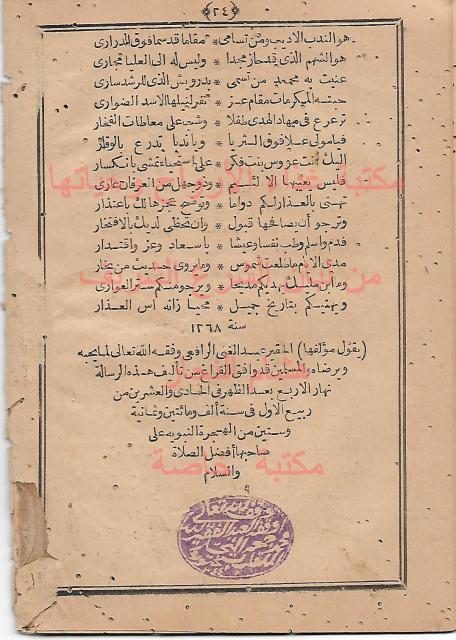 ٢٤
هو الندب الاديب ومن تسامى * مقاما قد سما فوق الدرارى
هو الشهم الذى قد حاز مجدا * وليس له الى العليا مجارى
عنيت به محمد من تسمى * بدرويش الذى للرشد سارى
حبته المكرمات مقام عز * تقر لنيلها الاسد الضوارى
ترعرع فى مهاد الهدى طفلا * وشب على معاطاة الفخار
فيا مولى علا فوق الثريا * ويا ندبا تدرع بالوقار
اليك أتت عروس بنت فكر * على استحياء تمشى بانكسار
فليس يعيبها الا لئيم * وذو جهل من العرفان عارى
تهنى بالعذار لكم دواما * وتوضح عجزها لك باعتذار
وترجو أن يصافحها قبول * وان تحظى لديك بالافتخار
فدم واسلم وطب نفسا وعيشا * باسعاد وعز واقتدار
مدى الايام ما طلعت شموس * وما يروى حديث من بخار
وما ابن مليك يهديكم مديحا * ويرجو منكم ستر العوار
ويهنيكم بتاريخ جميل * محيا زانه اس العذار
سنة ١٢٦٨
(يقول مؤلفها) الحقير عبد الغنى الرافعى وفقه الله تعالى لما يحبه
ويرضاه والمسلمين قد وافق الفراغ من تأليف هذه الرسالة
نهار الاربع بعد الظهر فى الحادى والعشرين من
ربيع الاول فى سنة ألف ومائتين وثمانية
وستين من الهجرة النبويه على
صاحبها أفضل الصلاة
والسلام
مكتبة خاصة